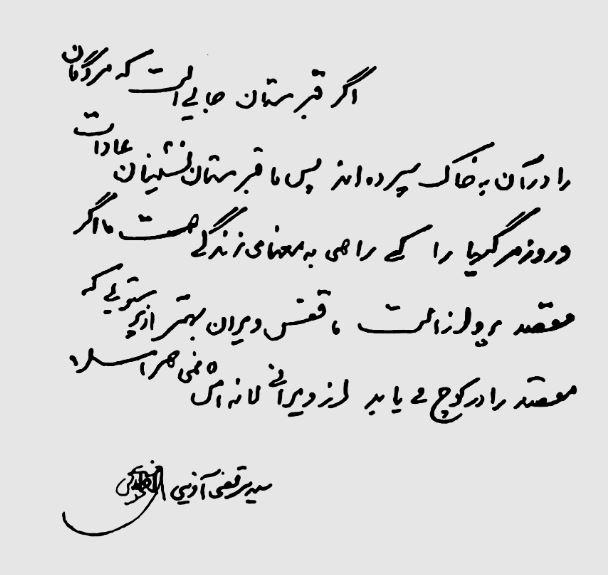 اگر قبرستان جایی است که مردگان
را در آن به خاک سپرده اند پس ما قبرستان نشینان عادات
و روزمرگیها را کی راهی به معنای زندگی هست ما اگر
مقصد پرواز است ، قفس ویران بهتر از پرستویی که
مقصد را در کوچ می یابد از ویرانی لانه اش نمی هراسد
سید مرتضی آوینی